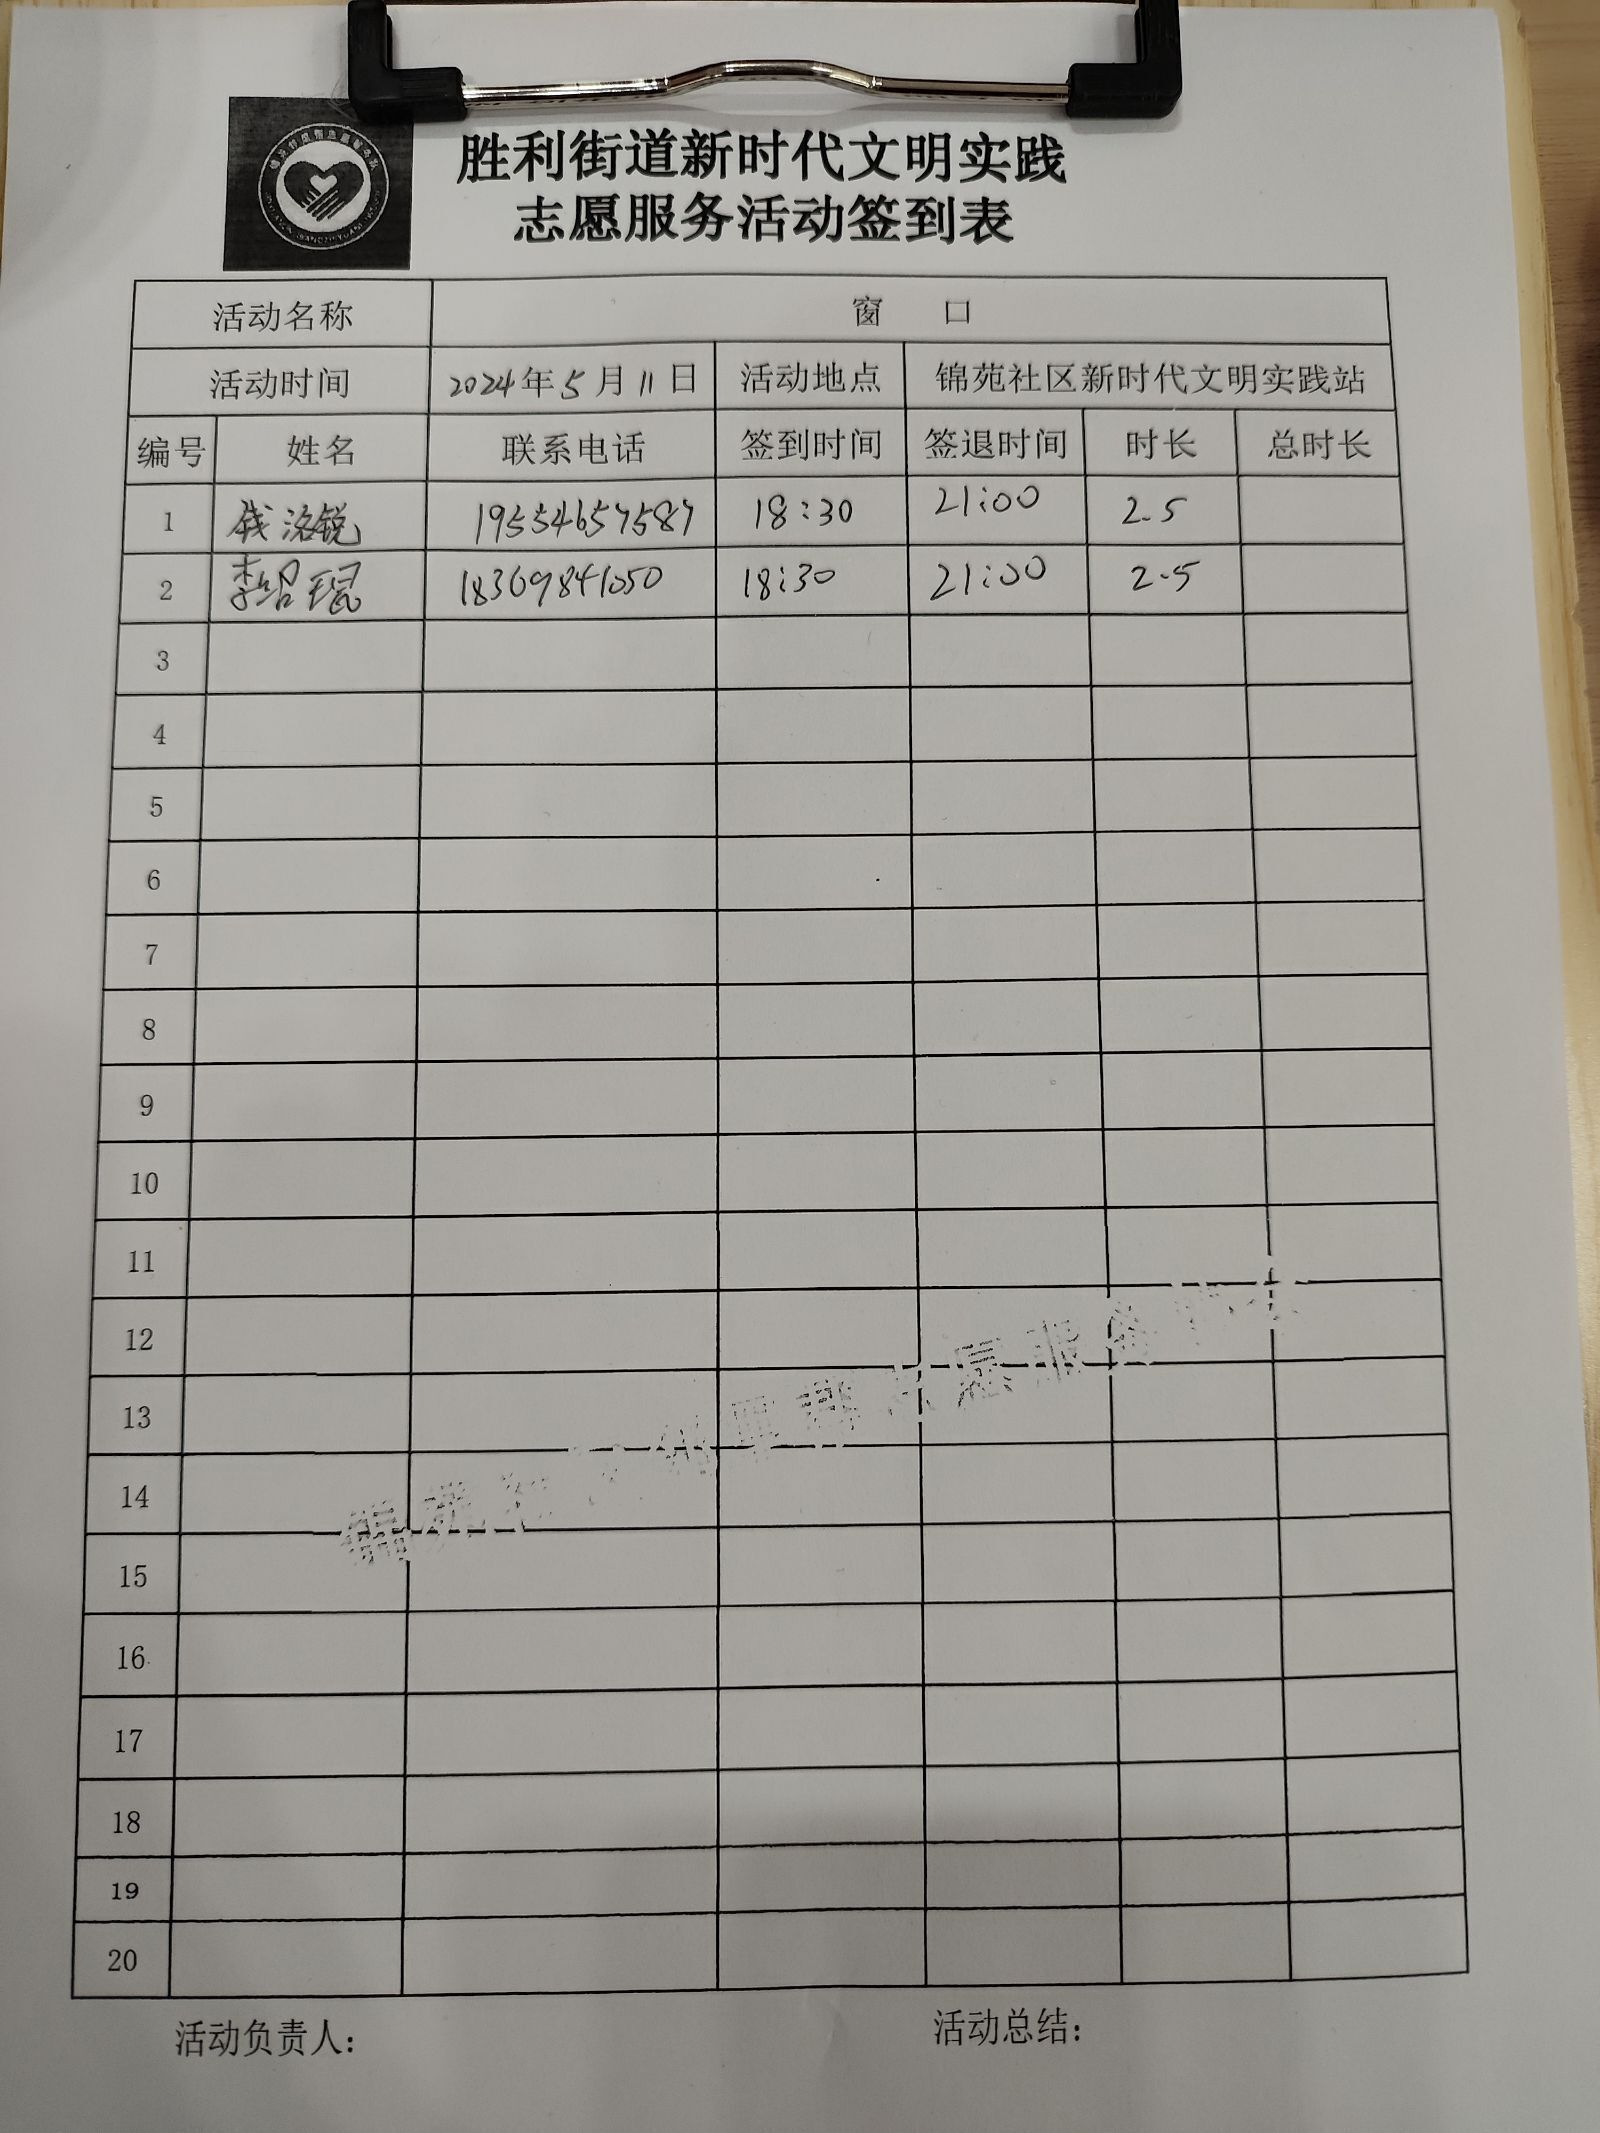 胜利街道新时代文明实践
志愿服务活动签到表
活动名称 窗 口
活动时间 2024年5月11日 活动地点 锦苑社区新时代文明实践站
编号 姓名 联系电话 签到时间 签退时间 时长 总时长
1 钱洺锐 19554657587 18:30 21:00 2.5
2 李绍琨 18369841050 18:30 21:00 2.5
3
4
5
6
7
8
9
10
11
12
13
14
15
16
17
18
19
20
活动负责人: 活动总结: